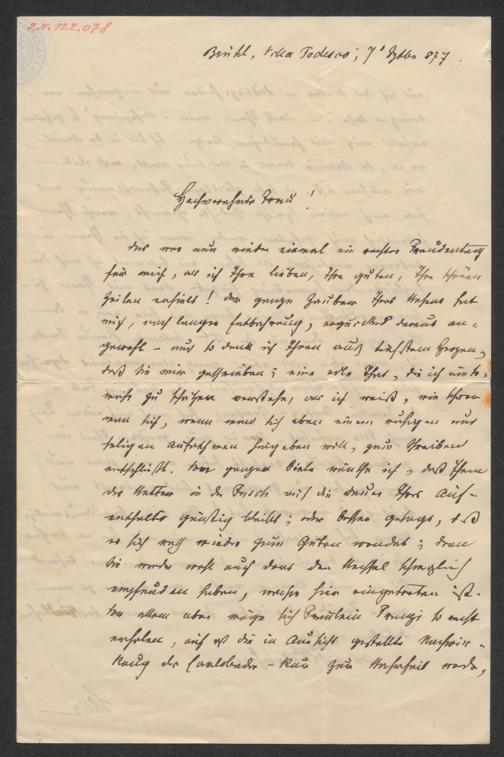 I.N. 122.078
Brühl, Villa Todesco; 7' Septbr 877.
Hochverehrte Frau!
das war nun wieder einmal ein rechter Freudentag
für mich, als ich Ihre lieben, Ihre guten, Ihre schönen
Zeilen erhielt! Der ganze Zauber Ihres Wesens hat
mich, nach langer Entbehrung, erquickend daraus an-
geweht – und so dank' ich Ihnen aus tiefstem Herzen,
daß Sie mir geschrieben; eine edle That, die ich umso-
mehr zu schätzen verstehe, als ich weiß, wie schwer
man sich, wenn man sich eben einem ruhigen und
seligen Aufathmen hingeben will, zum Schreiben
entschließt. Von ganzer Seele wünsche ich, daß Ihnen
das Wetter in die auf die Dauer Ihres Auf-
enthaltes günstig bleibt; oder besser gesagt, daß
es sich noch wieder zum Guten wendet; denn
Sie werden wohl auch dort den Wechsel schmerzlich
empfunden haben, welcher hier eingetreten ist.
Vor allem aber möge sich Fräulein Franzi so recht
erholen, auf daß die in Aussicht gestellte Nachwir-
kung der Carlsbader-Kur zur Wahrheit werde,